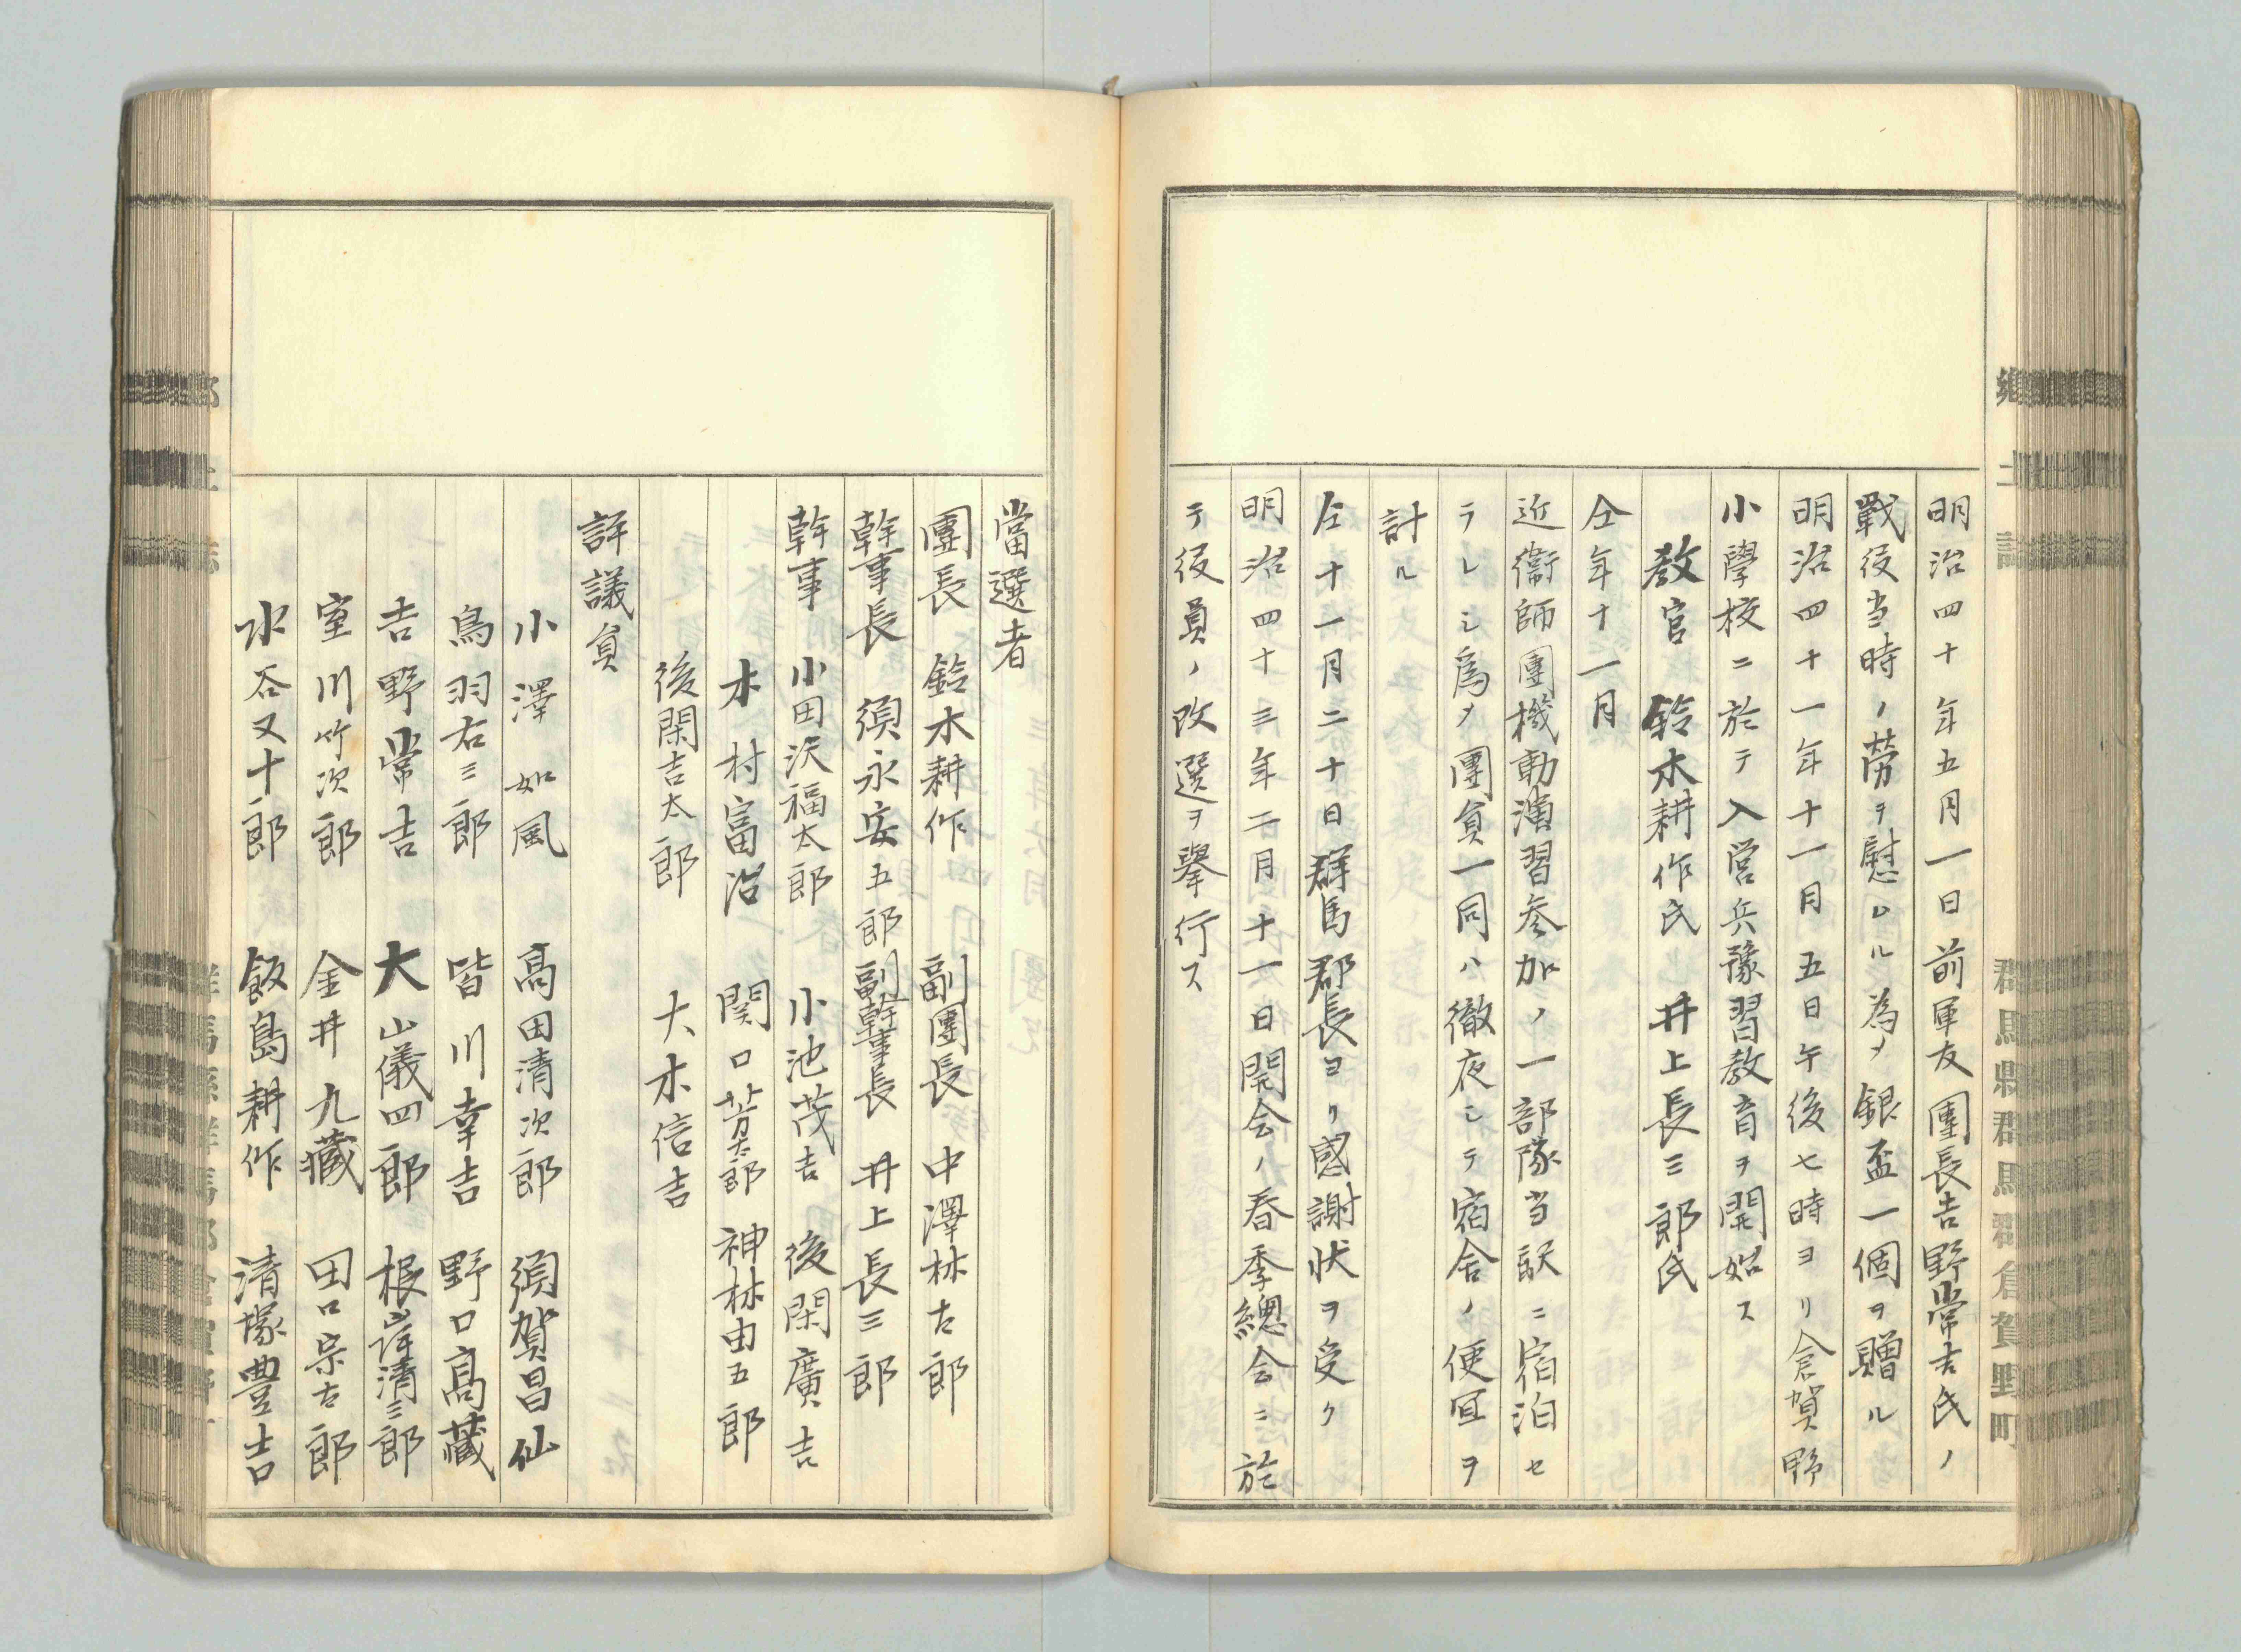 鄉土誌
群馬縣群馬郡倉賀野町
明治四十年五月一日前軍友團長吉野常吉氏ノ
戰役当時ノ労ヲ慰ムル為メ銀盃一個ヲ贈ル
明治四十一年十一月五日午後七時ヨリ倉賀野
小學校ニ於テ入営兵豫習教育ヲ開始ス
教官 鈴木耕作氏 井上長三郎氏
仝年十一月
近衞師團機動演習参加ノ一部隊当駅ニ宿泊セ
ラレシ爲メ團員一同ハ徹夜シテ宿舎ノ便宜ヲ
計ル
仝十一月二十日群馬郡長ヨリ感謝状ヲ受ク
明治四十三年二月十一日開会ノ春季總会ニ於
テ役員ノ改選ヲ擧行ス
當選者
團長 鈴木耕作 副團長 中澤林吉郎
幹事長 須永安五郎 副幹事長 井上長三郎
幹事 小田沢福太郎 小池茂吉 後閑廣吉
木村富治 関口芳太郎 神林由五郎
後閑吉太郎 大木信吉
評議員
小澤如風 高田清次郎 須賀昌仙
鳥羽右三郎 皆川幸吉 野口髙藏
吉野常吉 大山儀四郎 根岸清三郎
室川竹次郎 金井九藏 田口宗吉郎
水谷又十郎 飯島耕作 清塚豊吉